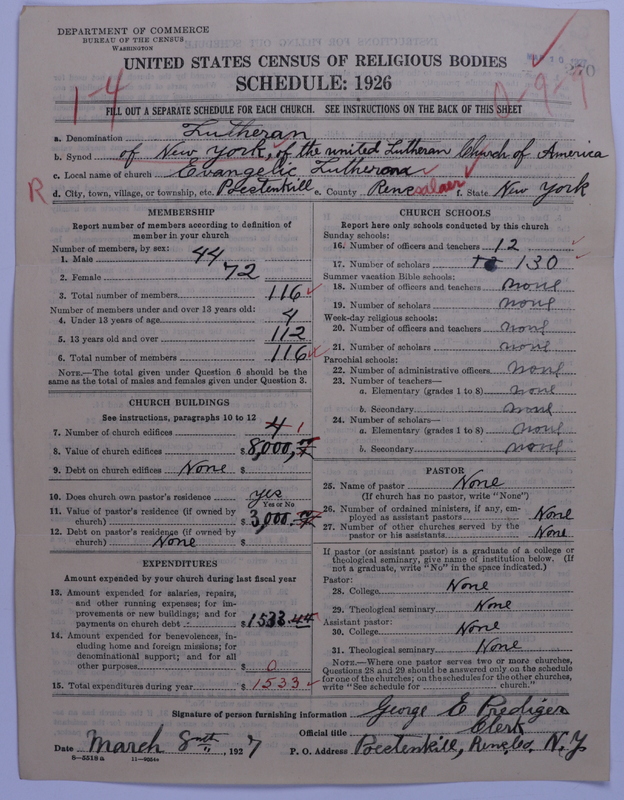 DEPARTMENT OF COMMERCE
BUREAU OF THE CENSUS
WASHINGTON
UNITED STATES CENSUS OF RELIGIOUS BODIES
SCHEDULE: 1926
1-4
FILL OUT A SEPARATE SCHEDULE FOR EACH CHURCH. SEE INSTRUCTIONS ON THE BACK OF THIS SHEET
a. Denomination Lutheran
b. Synod of New York, of the united Lutheran Church of America
c. Local name of church Evangelic Lutheran
R
d. City, town, village, or township, etc. Poestenkill e. County Renssalaer f. State New York
MEMBERSHIP
Report number of members according to definition of member in your church
Number of members, by sex:
1. Male 44
2. Female 72
3. Total number of members 116
Number of members under and over 13 years old:
4. Under 13 years of age 4
5. 13 years old and over 112
6. Total number of members 116
NOTE.—The total given under Question 6 should be the
same as the total of males and females given under Question 3.
CHURCH BUILDINGS
See instructions, paragraphs 10 to 12
7. Number of church edifices 4 1
8. Value of church edifices $8,000,
9. Debt on church edifices None $
10. Does church own pastor's residence yes
Yes or No
11. Value of pastor's residence (if owned by
church) $3,000.
12. Debt on pastor's residence (if owned by
church) None $
EXPENDITURES
Amount expended by your church during last fiscal year
13. Amount expended for salaries, repairs,
and other running expenses; for im-
provements or new buildings; and for
payments on church debt $1533.44
14. Amount expended for benevolences, in-
cluding home and foreign missions; for
denominational support; and for all
other purposes $ 0
15. Total expenditures during year $ 1533
CHURCH SCHOOLS
Report here only schools conducted by this church
Sunday schools:
16. Number of officers and teachers 12
17. Number of scholars 130
Summer vacation Bible schools:
18. Number of officers and teachers none
19. Number of scholars none
Week-day religious schools:
20. Number of officers and teachers none
21. Number of scholars none
Parochial schools:
22. Number of administrative officers none
23. Number of teachers—
a. Elementary (grades 1 to 8) none
b. Secondary none
24. Number of scholars—
a. Elementary (grades 1 to 8) none
b. Secondary none
PASTOR
25. Name of pastor None
(If church has no pastor, write "None")
26. Number of ordained ministers, if any, em-
ployed as assistant pastors None
27. Number of other churches served by the
pastor or his assistants None
If pastor (or assistant pastor) is a graduate of a college or
theological seminary, give name of institution below. (If
not a graduate, write "No" in the space indicated.)
Pastor:
28. College None
29. Theological seminary None
Assistant pastor:
30. College None
31. Theological seminary None
NOTE.—Where one pastor serves two or more churches,
Questions 28 and 29 should be answered only on the schedule
for one of the churches; on the schedules for the other churches,
write "See schedule for church."
Signature of person furnishing information George E Prediger
Official title Clerk
Date March 8th, 1927 P. O. Address Poestenkill, Rens. Co. N.Y.
8-5518 a 11-9054a